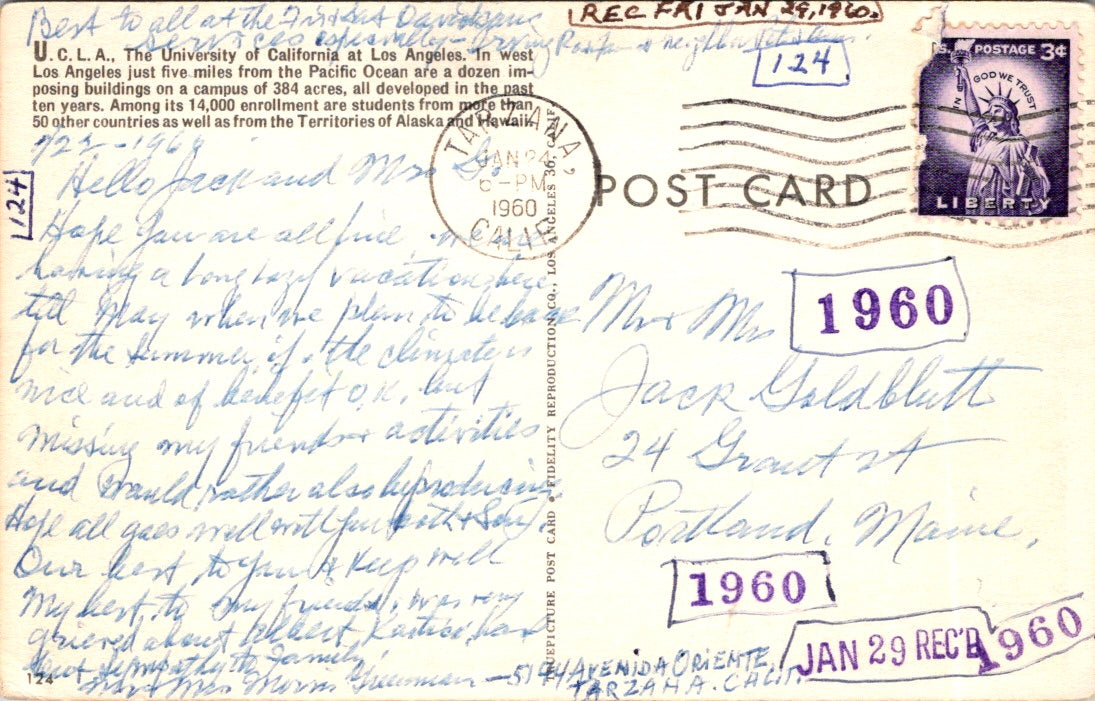 REC FRI JAN 29, 1960.
Best to all at the
services especially - Irving & neighbor
124
U.C.L.A., The University of California at Los Angeles. In west
Los Angeles just five miles from the Pacific Ocean are a dozen im-
posing buildings on a campus of 384 acres, all developed in the past
ten years. Among its 14,000 enrollment are students from more than
50 other countries as well as from the Territories of Alaska and Hawaii.
U.S. POSTAGE 3¢
IN GOD WE TRUST
LIBERTY
TARZANA,
JAN 24
6-PM
1960
CALIF.
POST CARD
124
Hello Jack and Mrs G.
Hope you are all fine. We are
having a long lazy vacation here
till May when we plan to be home
for the summer, if. the climate is
nice and of benefit O.K. but
missing my friends & activities
and would rather also be producing
Hope all goes well with you both & Son.
Our best to you & keep well
My best to my friends, was very
grieved about Albert
sent sympathy to family
Mr & Mrs Morris - 5144 AVENIDA ORIENTE,
TARZANA. CALIF.
124
TRUEPICTURE POST CARD • FIDELITY REPRODUCTION CO., LOS ANGELES 36, CALIF.
1960
Mr & Mrs
Jack Goldblatt
24 Grant St
Portland, Maine.
1960
JAN 29 REC'D
1960